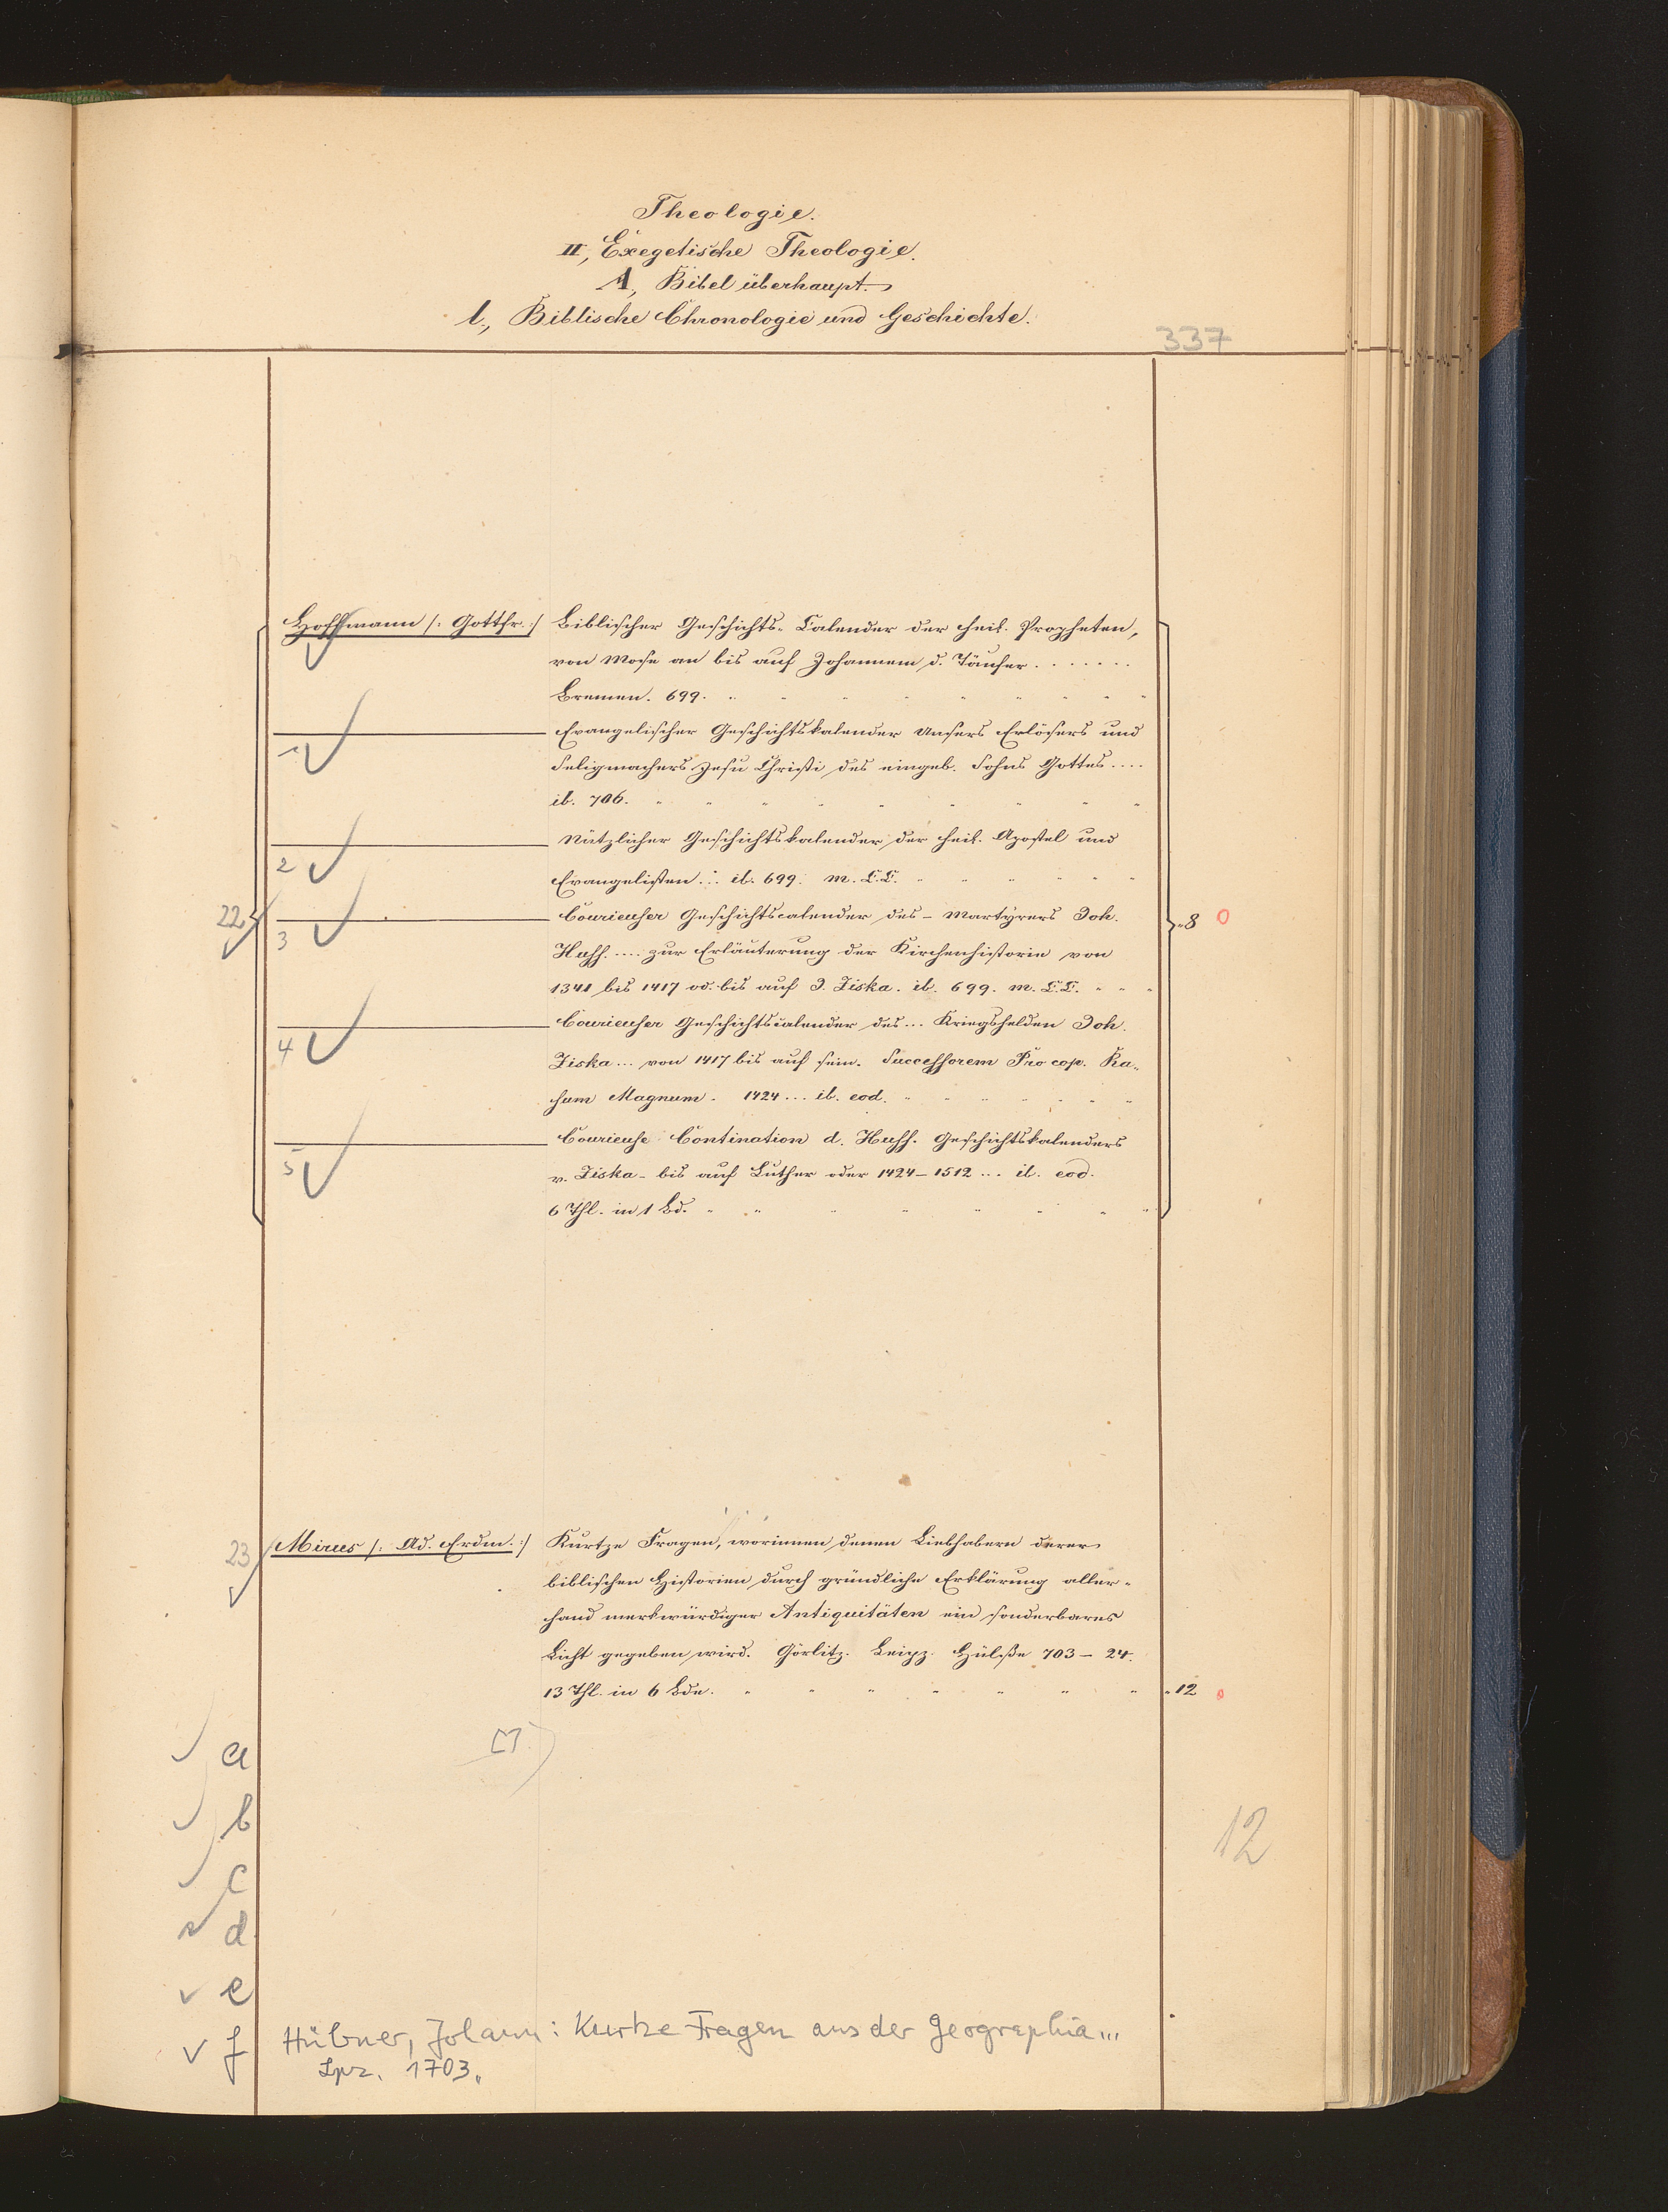 Theologie.
II, Exegetische Theologie.
A, Bibel überhaupt.
l., Biblische Chronologie und Geschichte.
337
Hoffmann /: Gottfr. :/ Biblischer Geschichts-Calender der heil. Propheten,
von Mose an bis auf Johannem d. Täufer . . . . . . .
Bremen. 699. " " " " " " " "
1 Evangelischer Geschichtskalender Unsers Erlösers und
Seligmachers Jesu Christi, des eingeb. Sohns Gottes ....
ib. 706. " " " " " " " " "
2 Nützlicher Geschichtskalender der heil. Apostel und
Evangelisten ... ib. 699. m. L.C. " " " " "
22 3 Courieuser Geschichtscalender des - Martyrers Joh. "8 0
Huss. .... zur Erläuterung der Kirchenhistorie von
1341 bis 1417 od. bis auf J. Ziska. ib. 699. m. L.C. " " "
4 Courieuser Geschichtscalender des ... Kriegshelden Joh.
Ziska ... von 1417 bis auf sein. Successorem Procop. Ra„
sum Magnum. 1424 ... ib. eod. " " " " " "
5 Courieuse Contination d. Huss. Geschichtskalenders
v. Ziska - bis auf Luther oder 1424–1512 ... ib. eod.
6 Thl. in 1 Bd. " " " " " " " "
23 Mirus /: Ad. Erdm. :/ Kurtze Fragen, worinnen denen Liebhabern derer
biblischen Historien durch gründliche Erklärung aller-
hand merkwürdiger Antiquitäten ein sonderbares
Licht gegeben wird. Görlitz. Leipz. Hülsse 703 – 24.
13 Thl. in 6 Bdn. " " " " " " " "12 0
a
b
12
c
d
e
f Hübner, Johann: Kurtze Fragen aus der Geographia ...
Lpz. 1703.